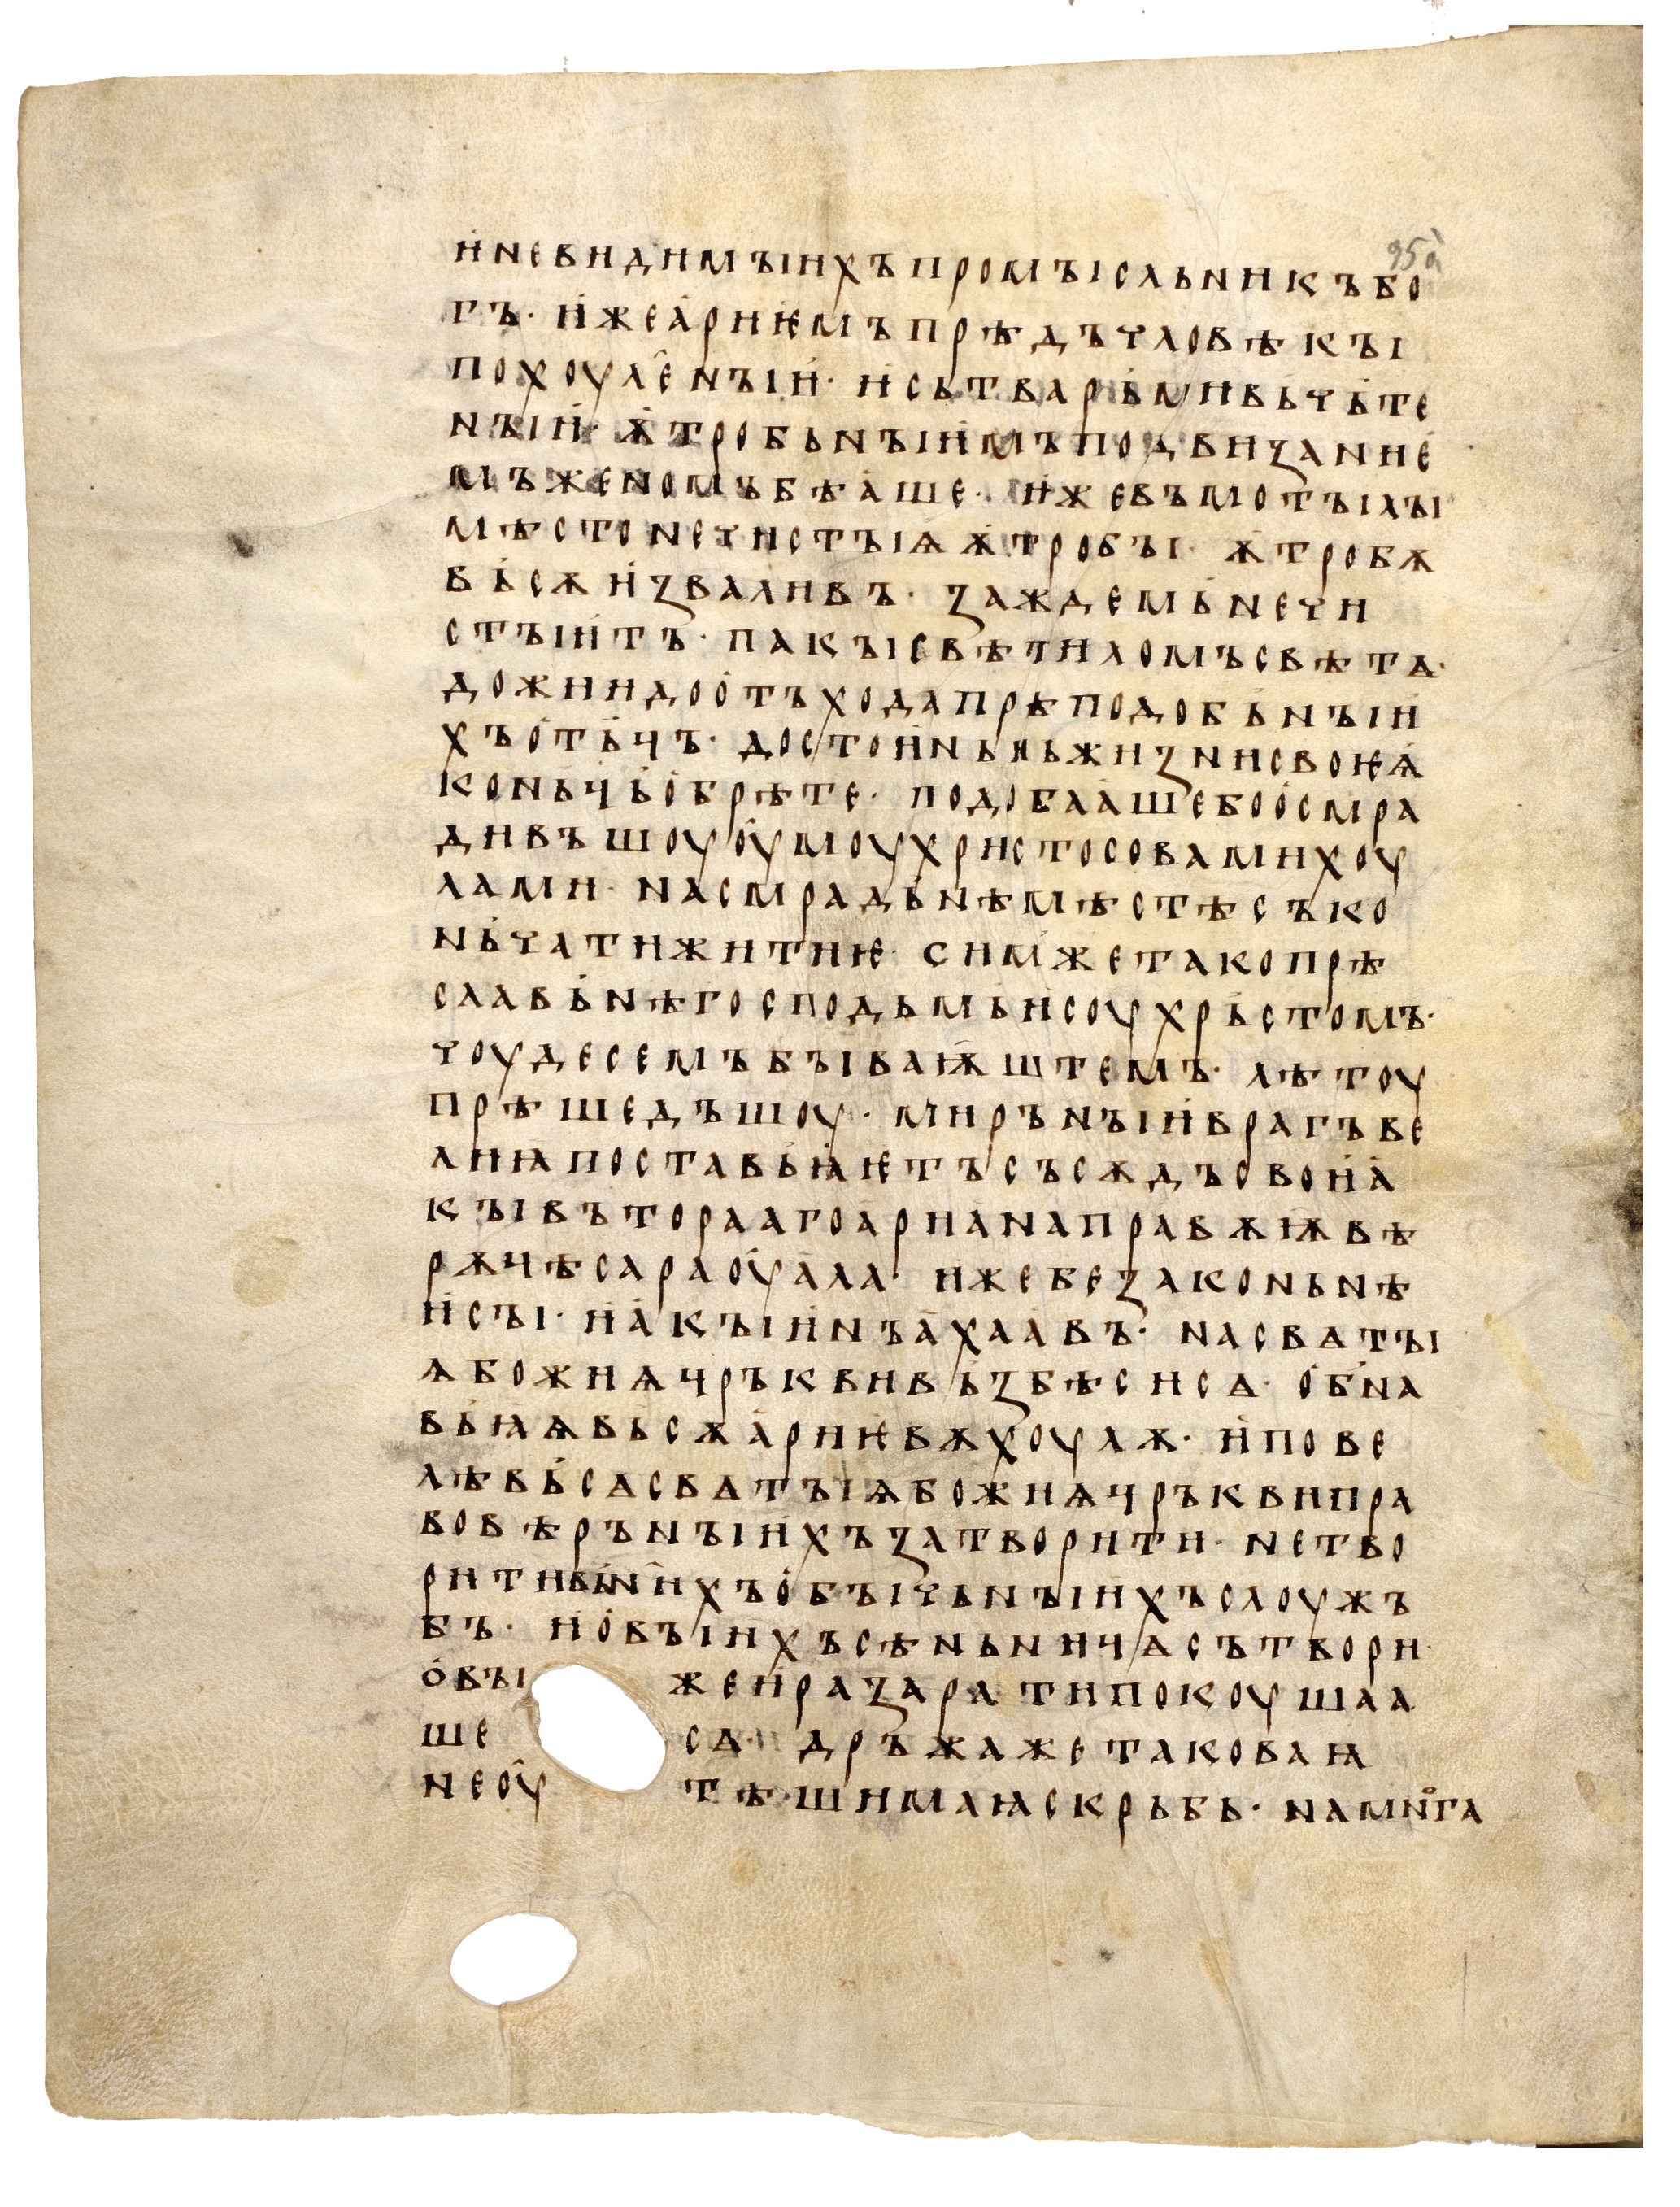 95а
и҆невидимъіихъпромъісльникъбо
гъ· и҆жеа҆риѥ҆мъпрѣдъчловѣкъі
похоуле҆нъіи҆· и҆сътвар҆ьмивьч҆ьте
нъіи҆· ѫ҆тробьнъіи҆мъподвиꙁание҆
мъженомъбѣа҆ше· и҆жевъмотъілъі
мѣстонечистъіѩѫ҆тробъі· ѫ҆тробѫ
в҆ьсѫи҆ꙁваливъ· ꙁаждем҆ьнечи
стъіи҆тъ· пакъісвѣтиломъсвѣта·
дожиидоо҆тъходапрѣподоб҆ьнъіи҆
хъо҆т҆ьцъ· достои҆ньнъжиꙁнисвоѥѩ҆
кон҆ьц҆ьо҆брѣте· подобаа҆шебоо҆смра
дивъшоуоу҆моухристосовамихоу
лами· насмрад҆ьнѣмѣстѣсъко
н҆ьчатижитиѥ· сим҆жетакопрѣ
слав҆ьнѣгосподьм҆ьи҆соухр҆ьстомъ·
чоудесемъбъіваѭ҆штемъ· лѣтоу
прѣшедъшоу· мирънъіи҆врагъве
лиꙗпоставьꙗ҆ѥтъсъсѫдъсвои҆а҆
къівътораагоа҆риа҆направѫѭ҆вѣ
рѫцѣсараоу҆а҆ла· ижебеꙁаконьнѣ
и҆съі· и҆а҆къіи҆нъа҆хаа҆въ· насвѧтъі
ѩбожиѩцръквивьꙁбѣсисѧ· о҆б҆на
в҆ьꙗѩв҆ьсѫа҆риѥ҆вѫхоулѫ· и҆пове
лѣв҆ьсѧсвѧтъіѩбожиѩцръквипра
вовѣрънъіи҆хъꙁатворити· нетво
ритив҆ьн҆ихъо҆бъічьнъіихъслоужъ
бъ· и҆о҆въіихъсѣньницѧсътвори·
о҆въі жеи҆раꙁаратипокоушаа
ше сѧ· дръжажетаковаꙗ
неоу҆ тѣшимаꙗскрьбь· намно҆га